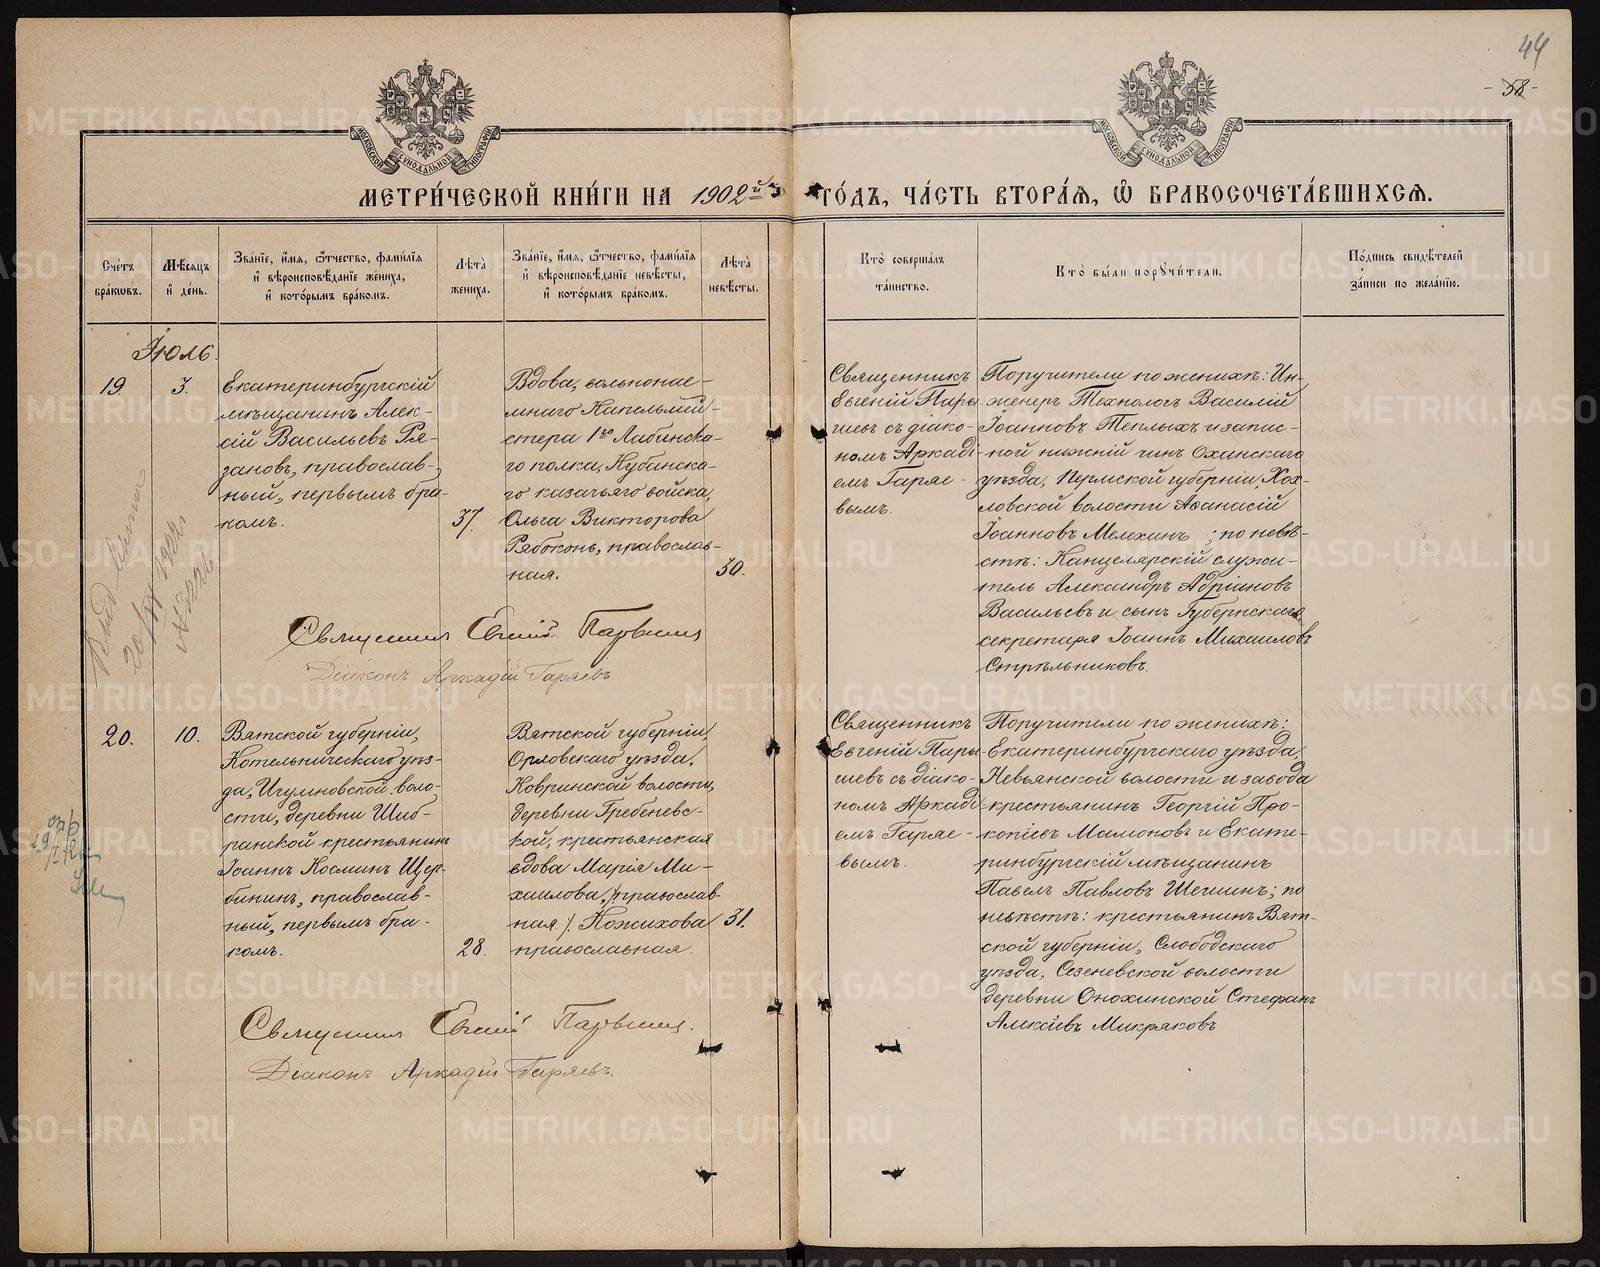 44
58
МОСКОВСКОЙ СУНОДАЛЬНОЙ ТИПОГРАФІИ
МОСКОВСКОЙ СУНОДАЛЬНОЙ ТИПОГРАФІИ
МЕТРИ́ЧЕСКОЙ КНИ́ГИ НА 1902й
ГО́ДЪ, ЧА́СТЬ ВТОРА́Я, Ѽ БРАКОСОЧЕТА́ВШИХСЯ.
Сче́тъ бра́кωвъ.
Мѣ́сяцъ и҆ де́нь.
Зва́нїе, и҆́мя, ѻ҆́тчество, фами́лїя и҆ вѣроисповѣ́данїе жениха̀, и҆ кото́рымъ бра́комъ.
Лѣ́та жениха.
Зва́нїе, и҆́мя, ѻ҆́тчество, фами́лїя и҆ вѣроисповѣ́данїе невѣ́сты, и҆ кото́рымъ бра́комъ.
Лѣ́та невѣ́сты.
Кто̀ соверша́лъ та́инство.
Кто̀ бы́ли порꙋчи́тели.
По́дпись свидѣ́телей за́писи по жела́нїю.
Іюль.
19.
3.
Екатеринбургскій
мѣщанинъ Алек-
сій Васильевъ Ря-
зановъ, православ-
ный, первымъ бра-
комъ.
37.
Вдова, вольнонае-
мнаго Капельмей-
стера 1го Лабинска-
го полка, Кубанска-
го казачьяго войска,
Ольга Викторова
Рябоконь, православ-
ная.
30.
Священникъ
Евгеній Пары-
шевъ съ діако-
номъ Аркаді-
емъ Гаряе-
вымъ.
Поручители по женихѣ: Ин-
женеръ Технологъ Василій
Іоанновъ Теплыхъ и запас-
ной нижній чинъ Оханскаго
уѣзда, Пермской губерніи, Хох-
ловской волости Аѳанасій
Іоанновъ Мелехинъ; по невѣ-
стѣ: Канцелярскій служи-
тель Александръ Адріановъ
Васильевъ и сынъ Губернскаго
секретаря Іоаннъ Михаиловъ
Стрѣльниковъ.
Священникъ Евгеній Парышевъ
Діаконъ Аркадій Гаряевъ.
20.
10.
Вятской губерніи,
Котельническаго уѣз-
да, Игумновской воло-
сти, деревни Шиб-
ранской крестьянинъ
Іоаннъ Косминъ Щер-
бининъ, православ-
ный, первымъ бра-
комъ.
28.
Вятской губерніи,
Орловскаго уѣзда,
Ковринской волости,
деревни Гребеневс-
кой, крестьянская
вдова Марія Ми-
хаилова, /православ-
ная/. Ножихова
православная.
31.
Священникъ
Евгеній Пары-
шевъ съ діако-
номъ Аркаді-
емъ Гаряе-
вымъ.
Поручители по женихѣ:
Екатеринбургскаго уѣзда,
Невьянской волости и завода
крестьянинъ Георгій Про-
копіевъ Мамоновъ и Екате-
ринбургскій мѣщанинъ
Павелъ Павловъ Шешинъ; по
невѣстѣ: крестьянинъ Вят-
ской губерніи, Слободскаго
уѣзда, Сезеневской волости
деревни Онохинской Стефанъ
Алексіевъ Микряковъ
Священникъ Евгеній Парышевъ.
Діаконъ Аркадій Гаряевъ.